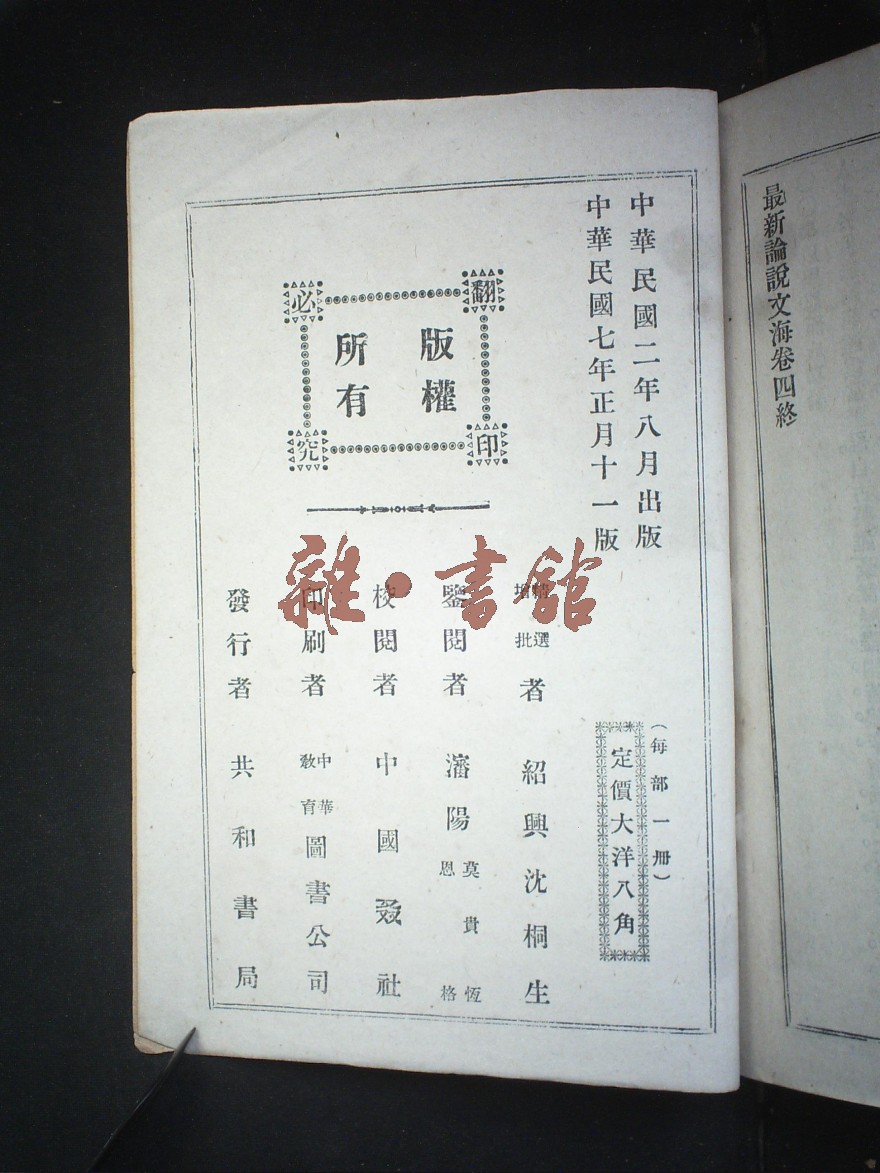 最新論說文海卷四終
中華民國二年八月出版
中華民國七年正月十一版
(每部一册)
定價大洋八角
翻印必究
版權所有
精選增批者 紹興沈桐生
鑒閱者 瀋陽 莫貴恆 恩格
校閱者 中國圖社
印刷者 中華教育圖書公司
發行者 共和書局
雜·書館